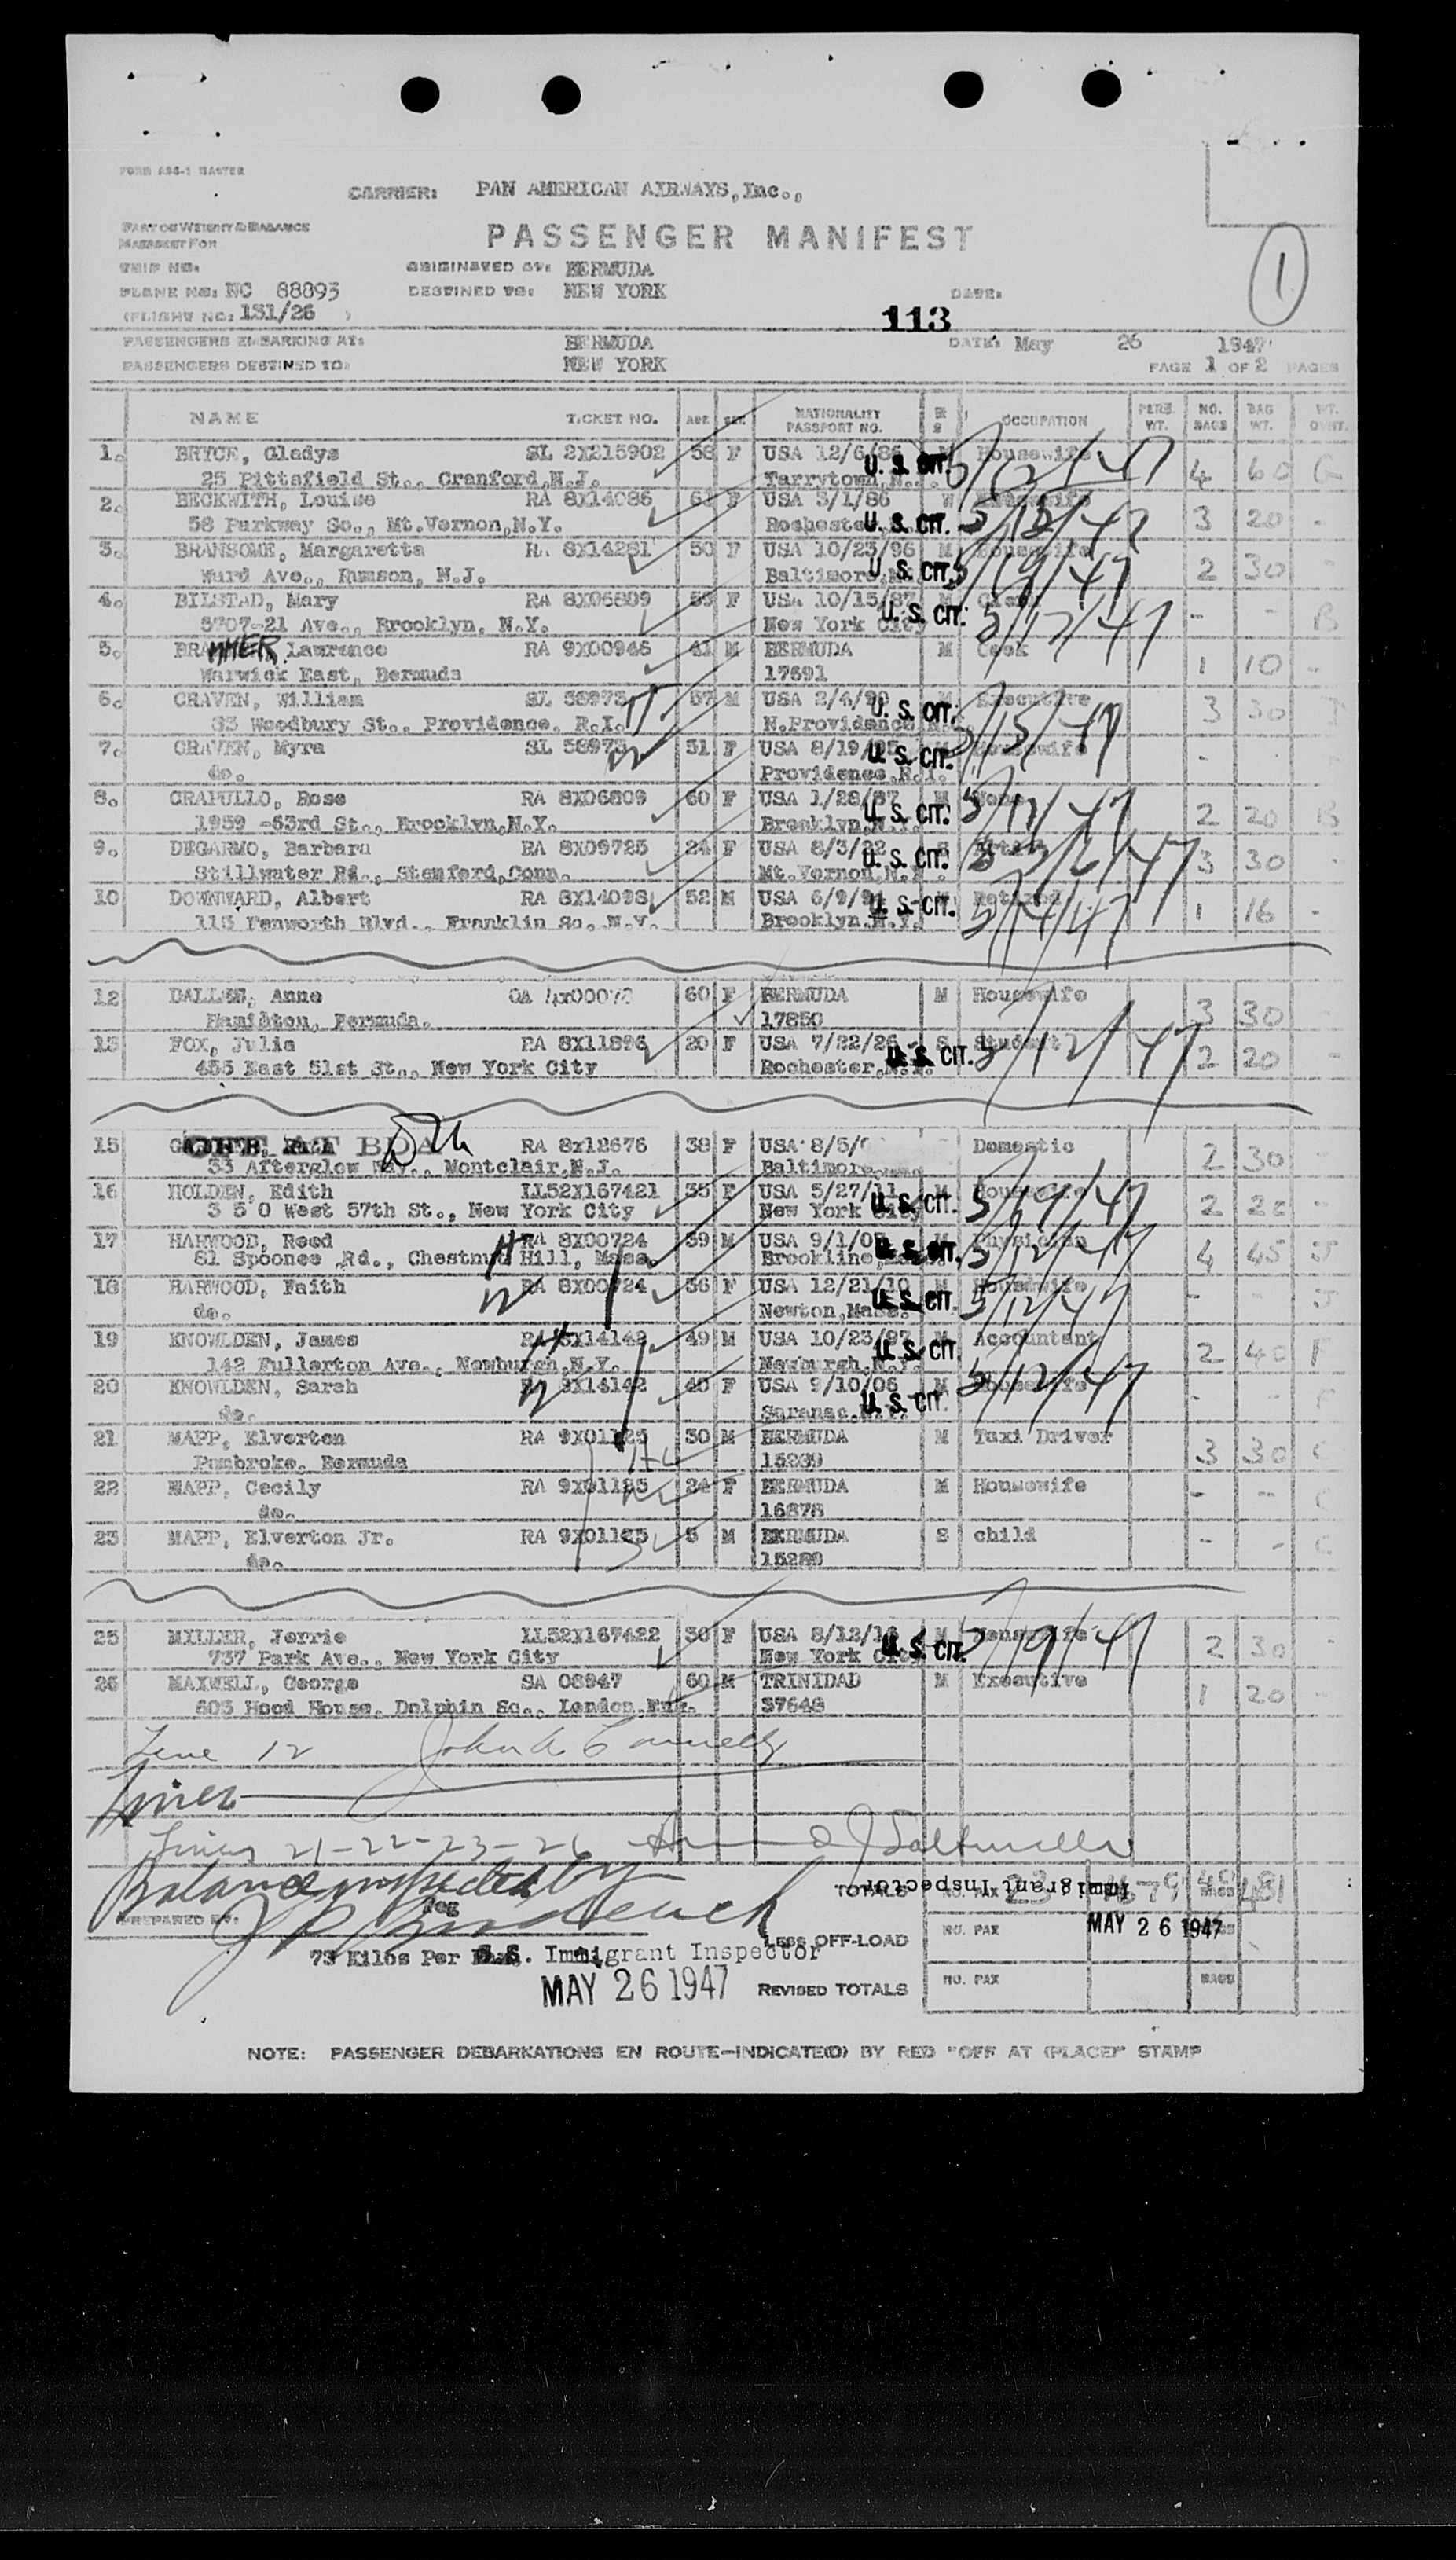 FORM AS6-1 MASTER
CARRIER: PAN AMERICAN AIRWAYS, Inc.,
PART OF WEIGHT & BALANCE
MANIFEST FOR
PASSENGER MANIFEST
TRIP NO:
ORIGINATED AT: BERMUDA
PLANE NO: NC 88893
DESTINED TO: NEW YORK
DATE:
1
(FLIGHT NO: 131/26 )
113
PASSENGERS EMBARKING AT: BERMUDA
DATE: May 26 1947
PASSENGERS DESTINED TO: NEW YORK
PAGE 1 OF 2 PAGES
NAME TICKET NO. AGE SEX NATIONALITY PASSPORT NO. OCCUPATION PERS. WT. NO. BAGS BAG WT.
1. BRYCE, Gladys SL 2X215902 58 F USA 12/6/88 U.S. CIT. Housewife 4 60 G
25 Pittsfield St., Cranford,N.J. Tarrytown,N.Y.
2. BECKWITH, Louise RA 8X14086 61 F USA 3/1/86 W Housewife 3 20 -
58 Parkway So., Mt.Vernon,N.Y. Rochester U.S. CIT.
3. BRANSOME, Margaretta RA 8X14281 50 F USA 10/23/96 M Housewife 2 30 -
Ward Ave., Rumson, N.J. Baltimore U.S. CIT. 5/19/47
4. BILSTAD, Mary RA 8X06809 59 F USA 10/15/87 - - B
5707-21 Ave., Brooklyn, N.Y. New York City U.S. CIT. 5/12/47
5. BRAMMER. Lawrence RA 9X00946 41 M BERMUDA M Cook 1 10 -
Warwick East, Bermuda 17691
6. CRAVEN, William SL 58973 57 M USA 2/4/90 U.S. CIT. Executive 3 30
83 Woodbury St., Providence, R.I. N.Providence 5/13/47
7. CRAVEN, Myra SL 58973 51 F USA 8/19/95 U.S. CIT. Housewife - -
do. Providence,R.I.
8. CRAPULLO, Rose RA 8X06809 60 F USA 1/28/87 M None 2 20 B
1959 -63rd St., Brooklyn,N.Y. Brooklyn,N.Y. U.S. CIT. 5/12/47
9. DEGARMO, Barbara RA 8X09725 24 F USA 8/3/22 S Artist 3 30 -
Stillwater Rd., Stamford,Conn. Mt.Vernon,N.Y. U.S. CIT.
10 DOWNWARD, Albert RA 8X14098 52 M USA 6/9/94 M Retired 1 16 -
115 Fenworth Blvd., Franklin Sq. N.Y. Brooklyn.N.Y. U.S. CIT. 5/14/47
12 DALLES, Anne 60 F BERMUDA M Housewife 3 30 -
Hamilton, Bermuda. 17850
13 FOX, Julia RA 8X11896 20 F USA 7/22/26 S Student 2 20 -
455 East 51st St., New York City Rochester,N.Y. U.S. CIT. 5/12/47
15 OFF AT BDA RA 8X12676 38 F USA 8/5/ Domestic 2 30 -
33 Afterglow Way., Montclair,N.J. Baltimore
16 HOLDEN, Edith LL52X167421 35 F USA 5/27/11 M Housewife 2 22 -
3 5 0 West 57th St., New York City New York City U.S. CIT. 5/19/47
17 HARWOOD, Reed RA 8X00724 39 M USA 9/1/07 M Physician 4 45 J
81 Spoonee Rd., Chestnut Hill, Mass. Brookline U.S. CIT. 5/12/47
18 HARWOOD, Faith RA 8X00724 36 F USA 12/21/10 M Housewife - - J
do. Newton,Mass. U.S. CIT. 5/12/47
19 KNOWLDEN, James RA 8X14142 49 M USA 10/23/97 M Accountant 2 40 F
142 Fullerton Ave., Newburgh,N.Y. Newburgh,N.Y. U.S. CIT.
20 KNOWLDEN, Sarah 8X14142 40 F USA 9/10/06 M Housewife - - F
do. Saranac,N.Y. U.S. CIT. 5/12/47
21 MAPP, Elverton RA 9X01125 30 M BERMUDA M Taxi Driver 3 30 C
Pembroke, Bermuda 15289
22 MAPP, Cecily RA 9X01125 24 F BERMUDA M Housewife - -- C
do. 16878
23 MAPP, Elverton Jr. RA 9X01125 5 M BERMUDA S child - - C
do. 15280
25 MILLER, Jerrie LL52X167422 30 F USA 8/12/16 M Housewife 2 30 -
737 Park Ave., New York City New York City U.S. CIT. 5/19/47
26 MAXWELL, George SA 08947 60 M TRINIDAD M Executive 1 20 -
803 Hood House, Dolphin Sq., London,Eng. 37648
Line 12
Lines
Lines 21-22-23-26
Balance inspected by
TOTALS NO. PAX 23 BAGS
Immigrant Inspector
PREPARED BY:
LESS OFF-LOAD NO. PAX MAY 26 1947
73 Kilos Per
U.S. Immigrant Inspector
MAY 26 1947 REVISED TOTALS NO. PAX BAGS
NOTE: PASSENGER DEBARKATIONS EN ROUTE-INDICATE(D) BY RED "OFF AT (PLACE)" STAMP